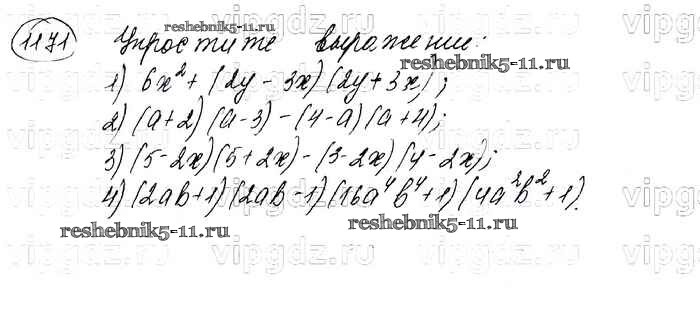 reshebnik5-11.ru
1171 Упростите выражение:
reshebnik5-11.ru
1) 6x² + (2y - 3x)(2y + 3x);
2) (a+2)(a-3) - (4-a)(a+4);
3) (5-2x)(5+2x) - (3-2x)(4-2x);
4) (2ab+1)(2ab-1)(16a⁴b⁴+1)(4a²b²+1).
reshebnik5-11.ru reshebnik5-11.ru
vipgdz.ru vipgdz.ru vipgdz.ru